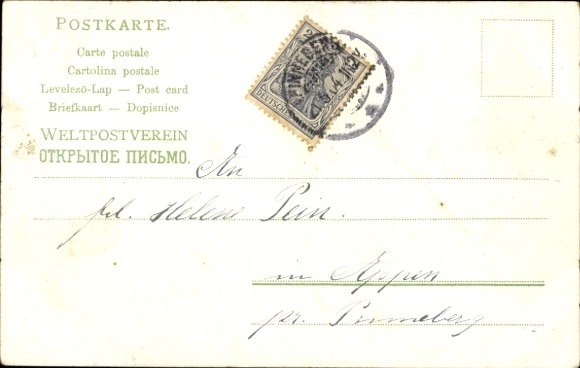 POSTKARTE.
Carte postale
Cartolina postale
Levelező-Lap — Post card
Briefkaart — Dopisnice
WELTPOSTVEREIN
ОТКРЫТОЕ ПИСЬМО.
PINNEBERG
DEUTSCHES
An
frl. Helene Pein.
in Appen
pr. Pinneberg